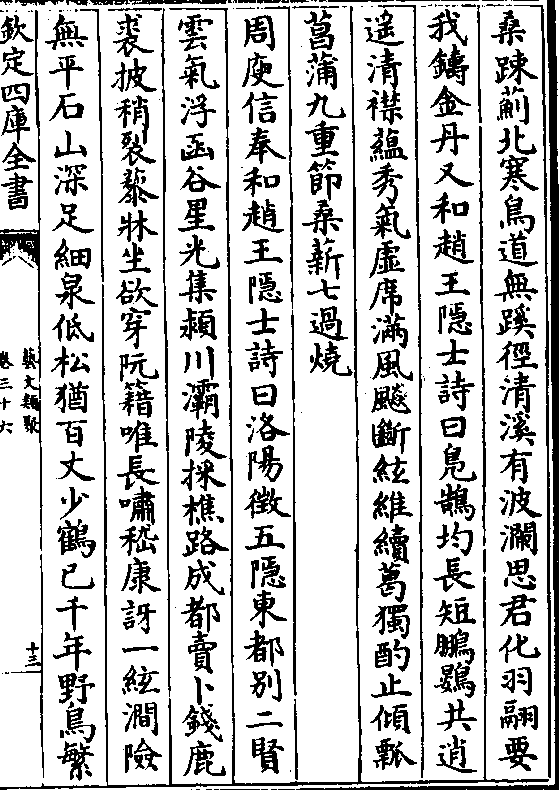 桑踈薊北寒鳥道無蹊徑清溪有波瀾思君化羽翮要
我鑄金丹又和趙王隱士詩曰鳬鵲均長短鵬鷃共逍
遥清襟藴秀氣虚席滿風飈斷絃維續葛獨酌止傾瓢
菖蒲九重節桑薪七過燒
周庾信奉和趙王隱士詩曰洛陽徵五隱東都别二賢
雲氣浮函谷星光集潁川灞陵採樵路成都賣卜錢鹿
裘披稍裂藜牀坐欲穿阮籍唯長嘯嵇康訝一絃澗險
無平石山深足細泉低松猶百丈少鶴已千年野鳥繁
欽定四庫全書
藝文類聚
卷三十六
十三